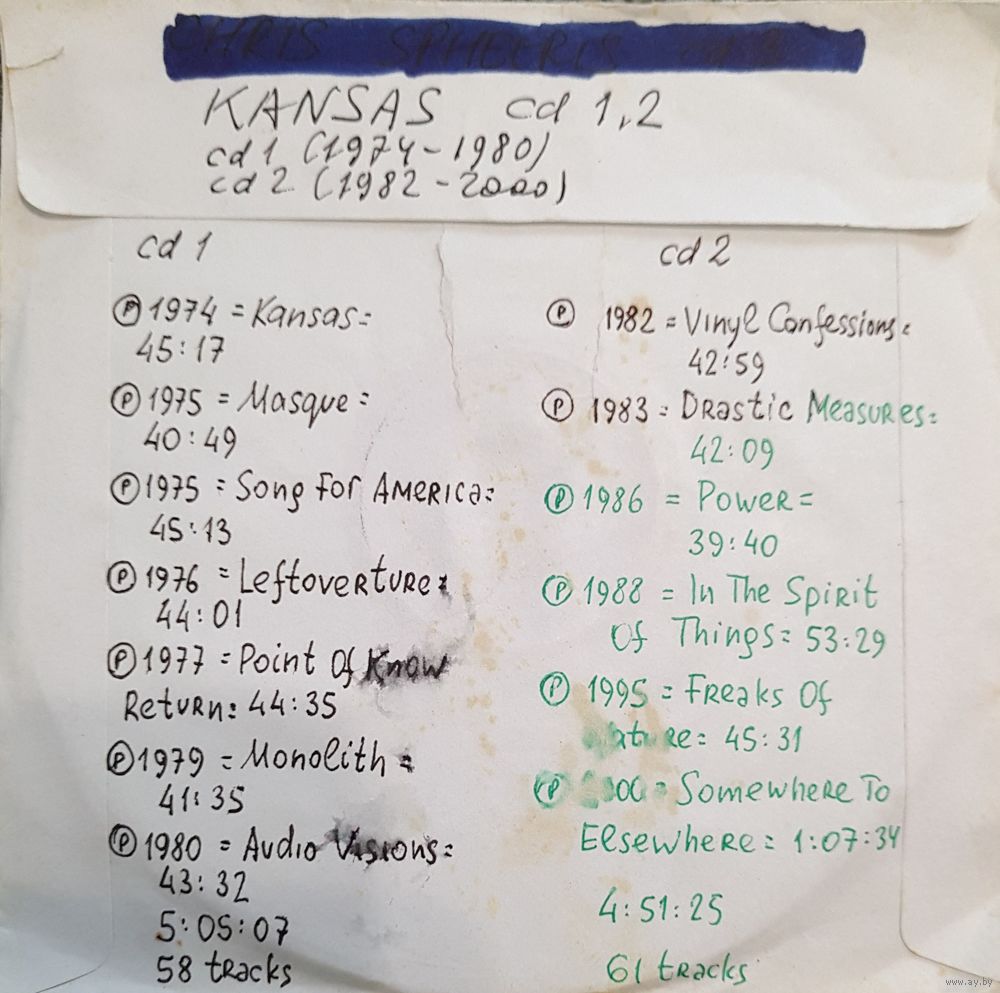 CHRIS SPHEERIS cd 3
KANSAS cd 1,2
cd 1 (1974-1980)
cd 2 (1982-2000)
cd 1
Ⓟ 1974 = Kansas=
45:17
Ⓟ 1975 = Masque=
40:49
Ⓟ 1975 = Song For America=
45:13
Ⓟ 1976 = Leftoverture=
44:01
Ⓟ 1977 = Point Of Know
Return= 44:35
Ⓟ 1979 = Monolith=
41:35
Ⓟ 1980 = Audio Visions=
43:32
5:05:07
58 tracks
cd 2
Ⓟ 1982 = Vinyl Confessions=
42:59
Ⓟ 1983 = Drastic Measures=
42:09
Ⓟ 1986 = Power=
39:40
Ⓟ 1988 = In The Spirit
Of Things= 53:29
Ⓟ 1995 = Freaks Of
Nature= 45:31
Ⓟ 2000 = Somewhere To
Elsewhere= 1:07:34
4:51:25
61 tracks
www.ay.by